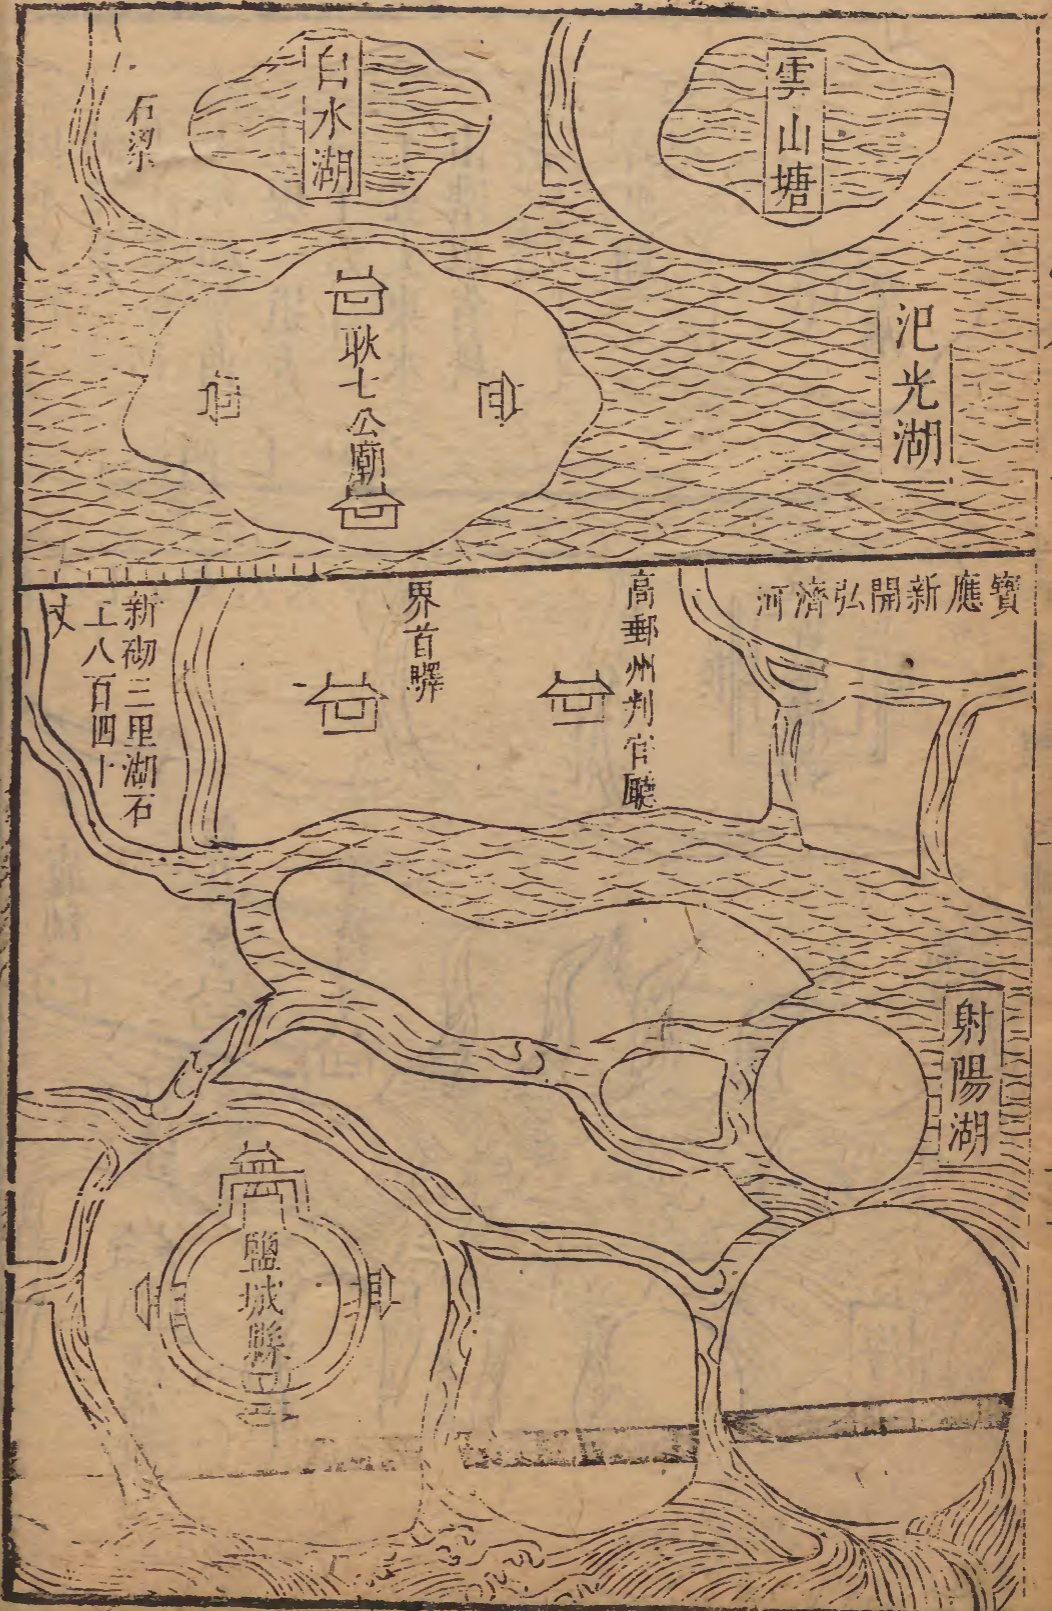 雲山塘
白水湖
石梁
氾光湖
耿七公廟
寶應新開弘濟河
高郵州判官廳
界首驛
新砌三里湖石
工八百四十
丈
射陽湖
鹽城縣